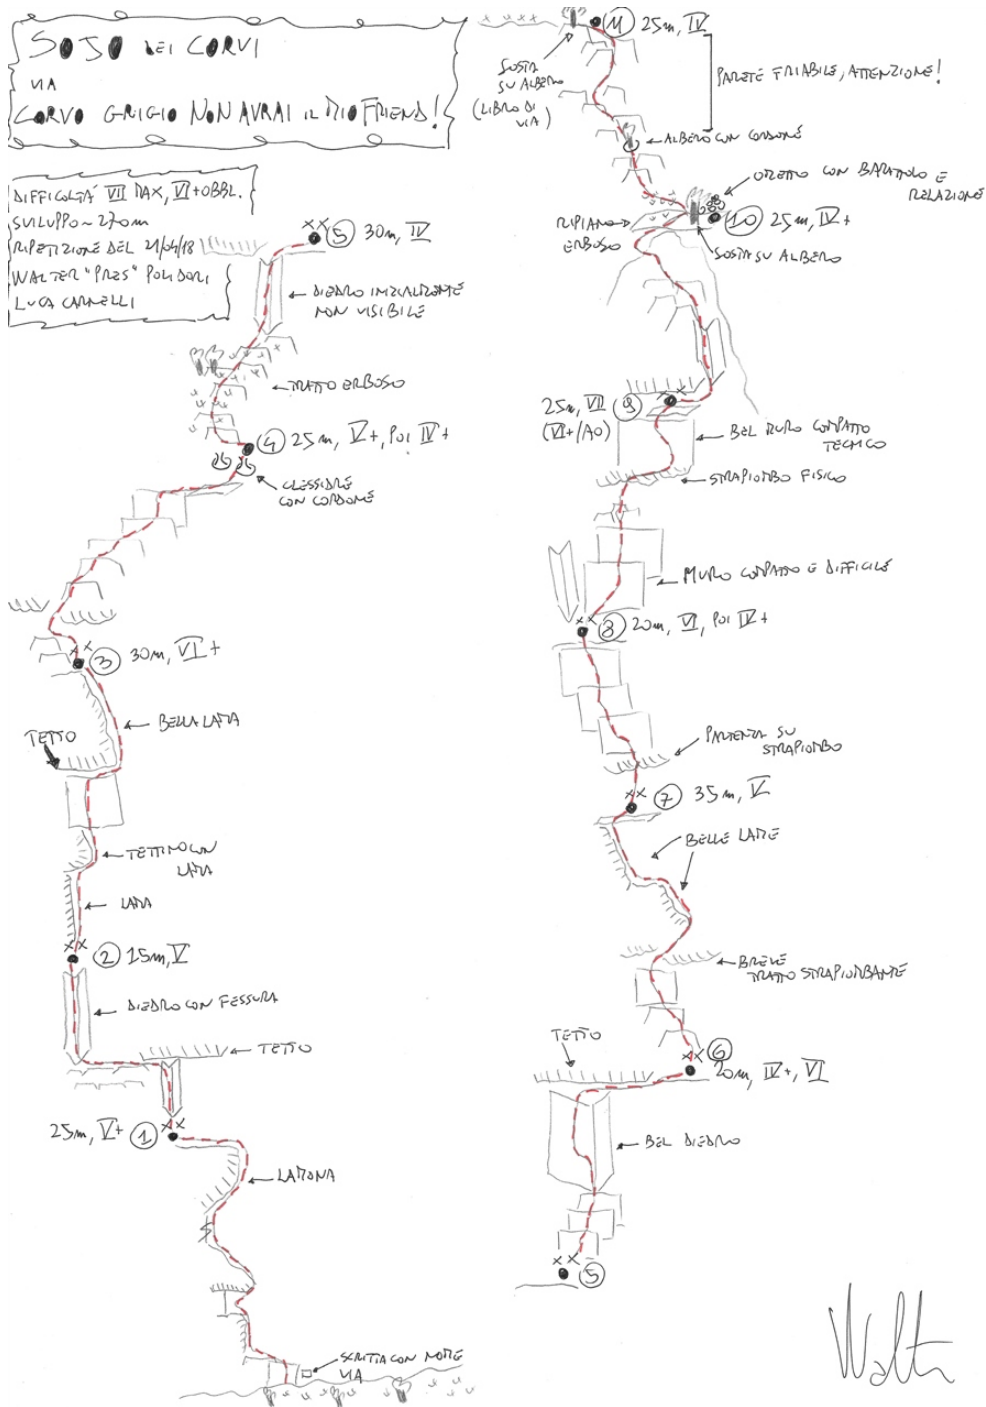 SOJO DEI CORVI
VIA
CORVO GRIGIO NON AVRAI IL MIO FRIEND!
DIFFICOLTÁ VII MAX, VI+ OBBL.
SVILUPPO ~ 270m
RIPETIZIONE DEL 21/04/18
WALTER "PRES" POLIDORI
LUCA CARNELLI
5 30m, IV
DIEDRO INIZIALMENTE
NON VISIBILE
TRATTO ERBOSO
4 25m, V+, POI IV+
CLESSIDRE
CON CORDONE
3 30m, VI+
BELLA LAMA
TETTO
TETTINO CON
LAMA
LAMA
2 15m, V
DIEDRO CON FESSURA
TETTO
25m, V+ 1
LAMONA
SCRITTA CON NOME
VIA
11 25m, IV
SOSTA
SU ALBERO
(LIBRO DI
VIA)
PARETE FRIABILE, ATTENZIONE!
ALBERO CON CORDONE
OMETTO CON BARATTOLO E
RELAZIONE
RIPIANO
ERBOSO
10 25m, IV+
SOSTA SU ALBERO
25m, VII 9
(VI+/A0)
BEL MURO COMPATTO
TECNICO
STRAPIOMBO FISICO
MURO COMPATTO E DIFFICILE
8 20m, VI, POI IV+
PARTENZA SU
STRAPIOMBO
7 35m, V
BELLE LAME
BREVE
TRATTO STRAPIOMBANTE
TETTO
6
20m, IV+, VI
BEL DIEDRO
5
Walter